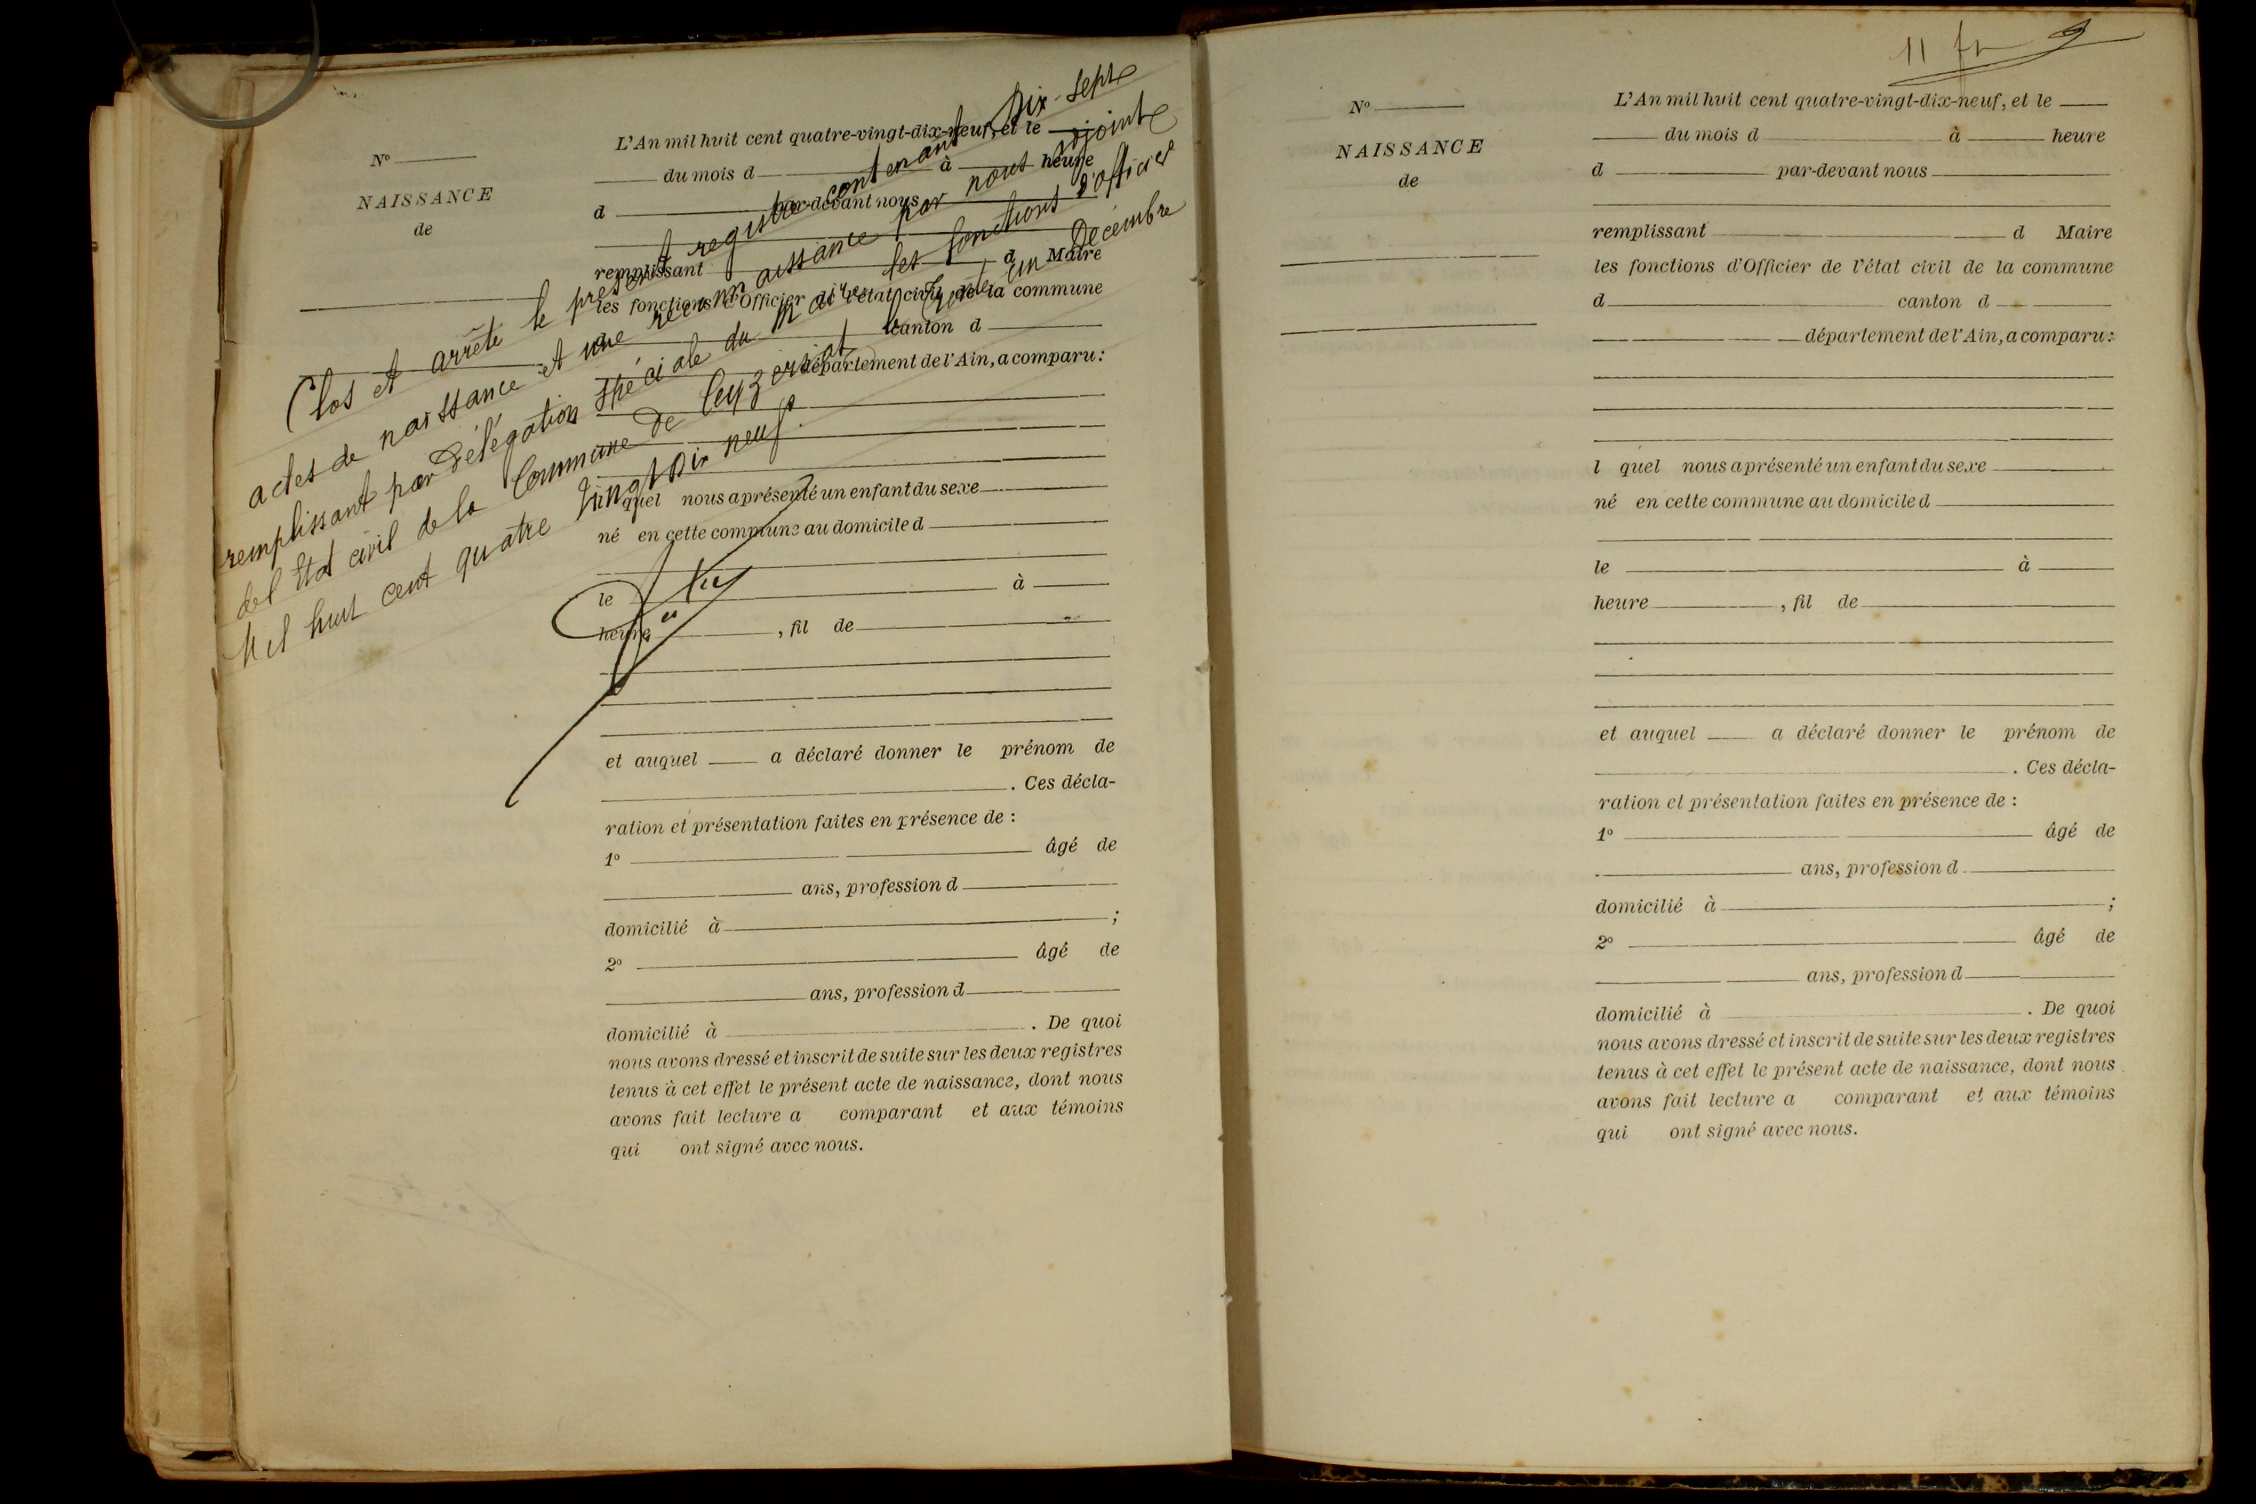 Nº
NAISSANCE
de
L'An mil huit cent quatre-vingt-dix-neuf, et le
du mois d à heure
d par-devant nous
remplissant d Maire
les fonctions d'Officier de l'état civil de la commune
canton d
département de l'Ain, a comparu :
quel nous a présenté un enfant du sexe
né en cette commune au domicile d
le à
heure , fil de
et auquel a déclaré donner le prénom de
. Ces décla-
ration et présentation faites en présence de :
1º âgé de
ans, profession d
domicilié à ;
2º âgé de
ans, profession d
domicilié à . De quoi
nous avons dressé et inscrit de suite sur les deux registres
tenus à cet effet le présent acte de naissance, dont nous
avons fait lecture a comparant et aux témoins
qui ont signé avec nous.
Clos et arrêté le présent registre contenant Dix-sept
actes de naissance et une reconnaissance par nous adjoint
remplissant par Délégation spéciale du Maire les fonctions d'officier
de l'Etat civil de la Commune de Ceyzériat le trente un Décembre
Mil huit cent quatre Vingt Dix neuf.
11
Nº
NAISSANCE
de
L'An mil huit cent quatre-vingt-dix-neuf, et le
du mois d à heure
d par-devant nous
remplissant d Maire
les fonctions d'Officier de l'état civil de la commune
d canton d
département de l'Ain, a comparu :
l quel nous a présenté un enfant du sexe
né en cette commune au domicile d
le à
heure , fil de
et auquel a déclaré donner le prénom de
. Ces décla-
ration et présentation faites en présence de :
1º âgé de
ans, profession d
domicilié à ;
2º âgé de
ans, profession d
domicilié à . De quoi
nous avons dressé et inscrit de suite sur les deux registres
tenus à cet effet le présent acte de naissance, dont nous
avons fait lecture a comparant et aux témoins
qui ont signé avec nous.